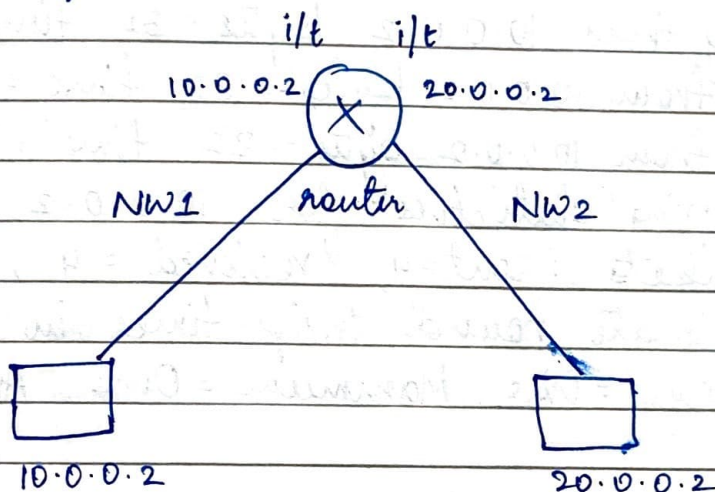 i/t i/t
10.0.0.2 20.0.0.2
NW1 router NW2
10.0.0.2 20.0.0.2